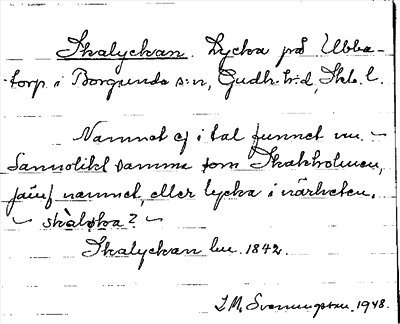 Skalyckan. Lycka på Ubba-
torp i Borgunda s:n, Gudh. h:d, Skb. l.
Namnet ej i tal funnet nu. –
Sannolikt samma som Skakholmen,
jämf namnet, eller lycka i närheten.
– skàlɩka? –
Skalyckan lm. 1842.
I. M. Svenungsson. 1948.